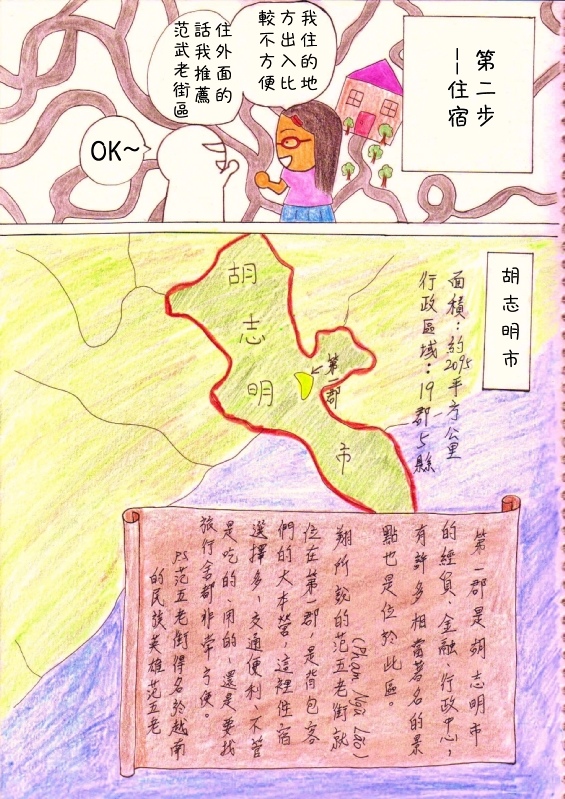 第二步
—住宿
我住的地
方出入比
較不方便
住外面的
話我推薦
范武老街區
OK~
胡志明市
面積：約2095平方公里
行政區域：19郡5縣
胡志明市
第一郡
第一郡是胡志明市
的經貿、金融、行政中心，
有許多相當著名的景
點也是位於此區。
(Phạm Ngũ Lão)
翔所說的范五老街就
位在第一郡，是背包客
們的大本營，這裡住宿
選擇多、交通便利、不管
是吃的、用的、還是要找
旅行舍都非常方便。
PS范五老街得名於越南
的民族英雄范五老